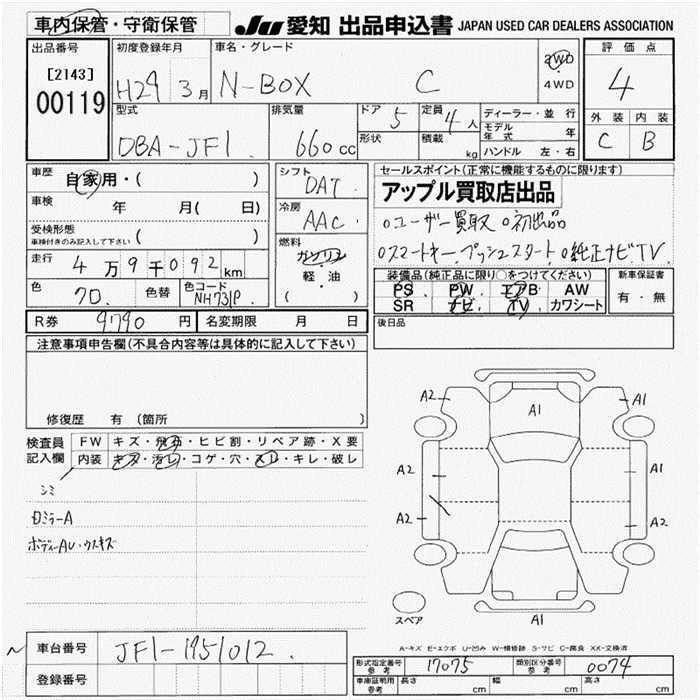 車内保管・守衛保管
JU 愛知 出品申込書 JAPAN USED CAR DEALERS ASSOCIATION
出品番号
[2143]
00119
初度登録年月
H29 3月
車名・グレード
N-BOX C
2WD
4WD
評価点
4
外装 内装
C B
型式
DBA-JF1
排気量
660cc
ドア 5
形状
定員 4人
積載 kg
ディーラー・並行
モデル年式 年
ハンドル 左・右
車歴 自家用・( )
車検 年 月(日)
受検形態
車検付きのみ記入して下さい ( )
走行 4万9千092km
色 クロ 色替 色コード NH731P
R券 9790円 名変期限 月 日
シフト
DAT
冷房
AAC
燃料
ガソリン
軽・油
( )
セールスポイント(正常に機能するものに限ります)
アップル買取店出品
○ユーザー買取 ○初出品
○スマートキー.プッシュスタート ○純正ナビTV
装備品(純正品に限り○をつけてください)
PS PW エアB AW
SR ナビ TV カワシート
新車保証書
有・無
後日品
注意事項申告欄(不具合内容等は具体的に記入して下さい)
修復歴 有(箇所 )
検査員記入欄
FW キズ・飛石・ヒビ割・リペア跡・X要
内装 キズ・汚レ・コゲ・穴・スレ・キレ・破レ
シミ
日ミラーA
ボディーAU・ウスキズ
A2 A1 A1
A2 A1
A2 A2
A1
スペア
A-キズ E-エクボ U-凹み W-補修跡 S-サビ C-腐食 XX-交換済
車台番号 JF1-1951012
登録番号
形式指定番号 参考 17075 類別区分番号 参考 0074
車庫証明用 参考 長さ cm 幅 cm 高さ cm